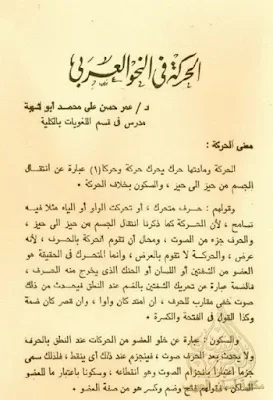 الحركة فى النحو العربى
د/ عمر حسن على محمد أبو شهبة
مدرس فى قسم اللغويات بالكلية
معنى الحركة :
الحركة ومادتها حرك يحرك حركة وحركا (١) عبارة عن انتقال
الجسم من حيز الى حيز ، والسكون بخلاف الحركة ٠
وقولهم : حرف متحرك ، أو تحركت الواو أو الياء مثلا فيه
تسامح ، لأن الحركة كما ذكرنا انتقال الجسم من حيز الى حيز ،
والحرف جزء من الصوت ، ومحال أن تقوم الحركة بالحرف ، لأنه
عرض ، والحركة لا تقوم بالعرض ، وانما المتحرك فى الحقيقة هو
العضو من الشفتين أو اللسان أو الحنك الذى يخرج منه الحرف ،
فالضمة عبارة عن تحريك الشفتين بالضم عند النطق فيحدث من ذلك
صوت خفى مقارب للحرف ، ان امتد كان واوا ، وان قصر كان ضمة
وكذا القول فى الفتحة والكسرة ٠
والسكون : عبارة عن خلو العضو من الحركات عند النطق بالحرف
ولا يحدث بعد الحرف صوت ، فينجزم عند ذلك أى ينقطع ، فلذلك سمى
جزما اعتبارا بانجزام الصوت وهو انقطاعه ، وسكونا باعتبار ما للعضو
فتح وضم وكسر هو من صفة العضو ٠